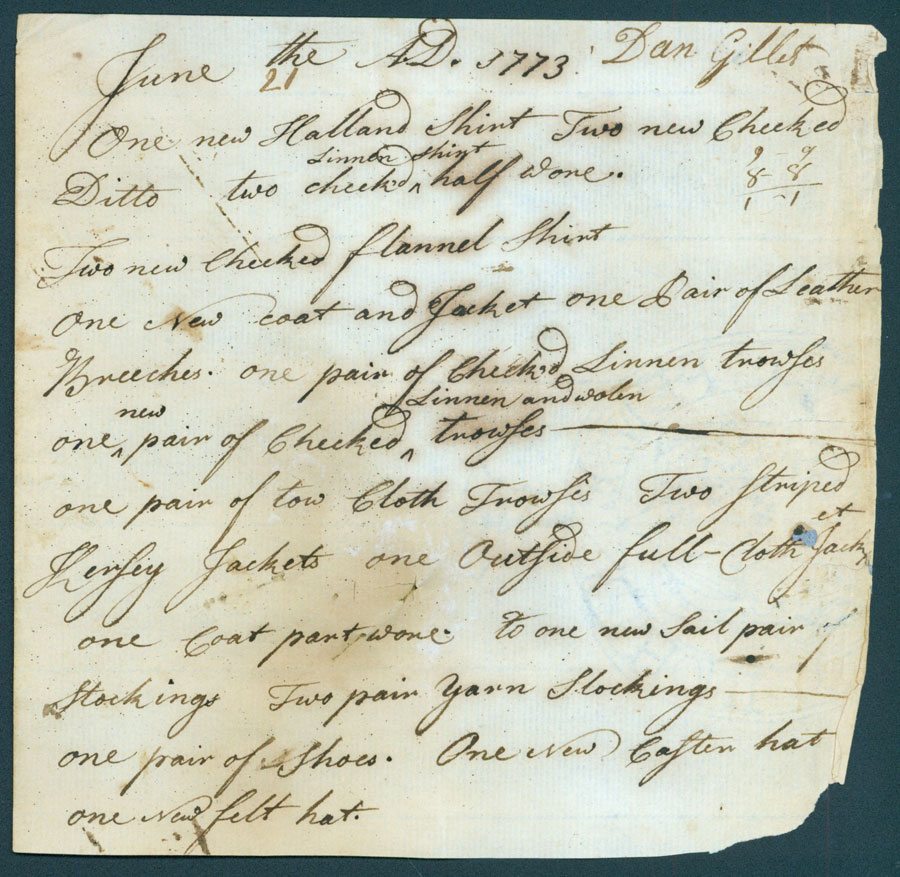 June the 21 A.D. 1773 Dan Gillet
One new Halland Shirt Two new Checked
9 - 9
Linnen Shirt
Ditto two checkd ^ half wore.
8 8
1 - 1
Two new Checked flannel Shirt
One New coat and Jacket one Pair of Leather
Breeches. one pair of Checkd Linnen trowses
new Linnen and wolen
one ^ pair of Checked ^ trowses
one pair of tow Cloth Trowses Two Striped
Kersey Jackets one Outside full-Cloth Jacket
one Coat part wore. to one new Sail pair of
Stockings Two pair Yarn Stockings
one pair of Shoes. One New Caster hat
one New felt hat.